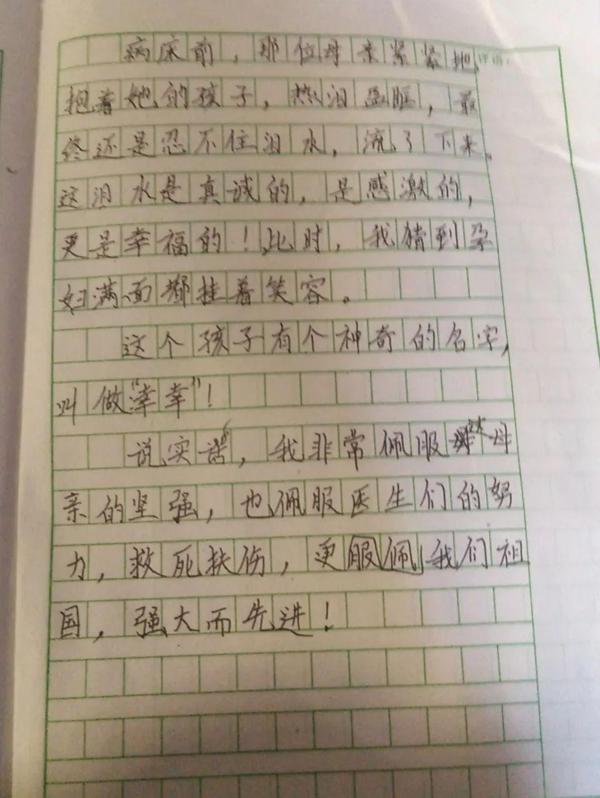 评语：
病床前，那位母亲紧紧地
抱着她的孩子，热泪盈眶，最
终还是忍不住泪水，流了下来。
这泪水是真诚的，是感激的，
更是幸福的！此时，我猜到孕
妇满面都挂着笑容。
这个孩子有个神奇的名字，
叫做"幸幸"！
说实话，我非常佩服 母
亲的坚强，也佩服医生们的努
力，救死扶伤，更服佩我们祖
国，强大而先进！